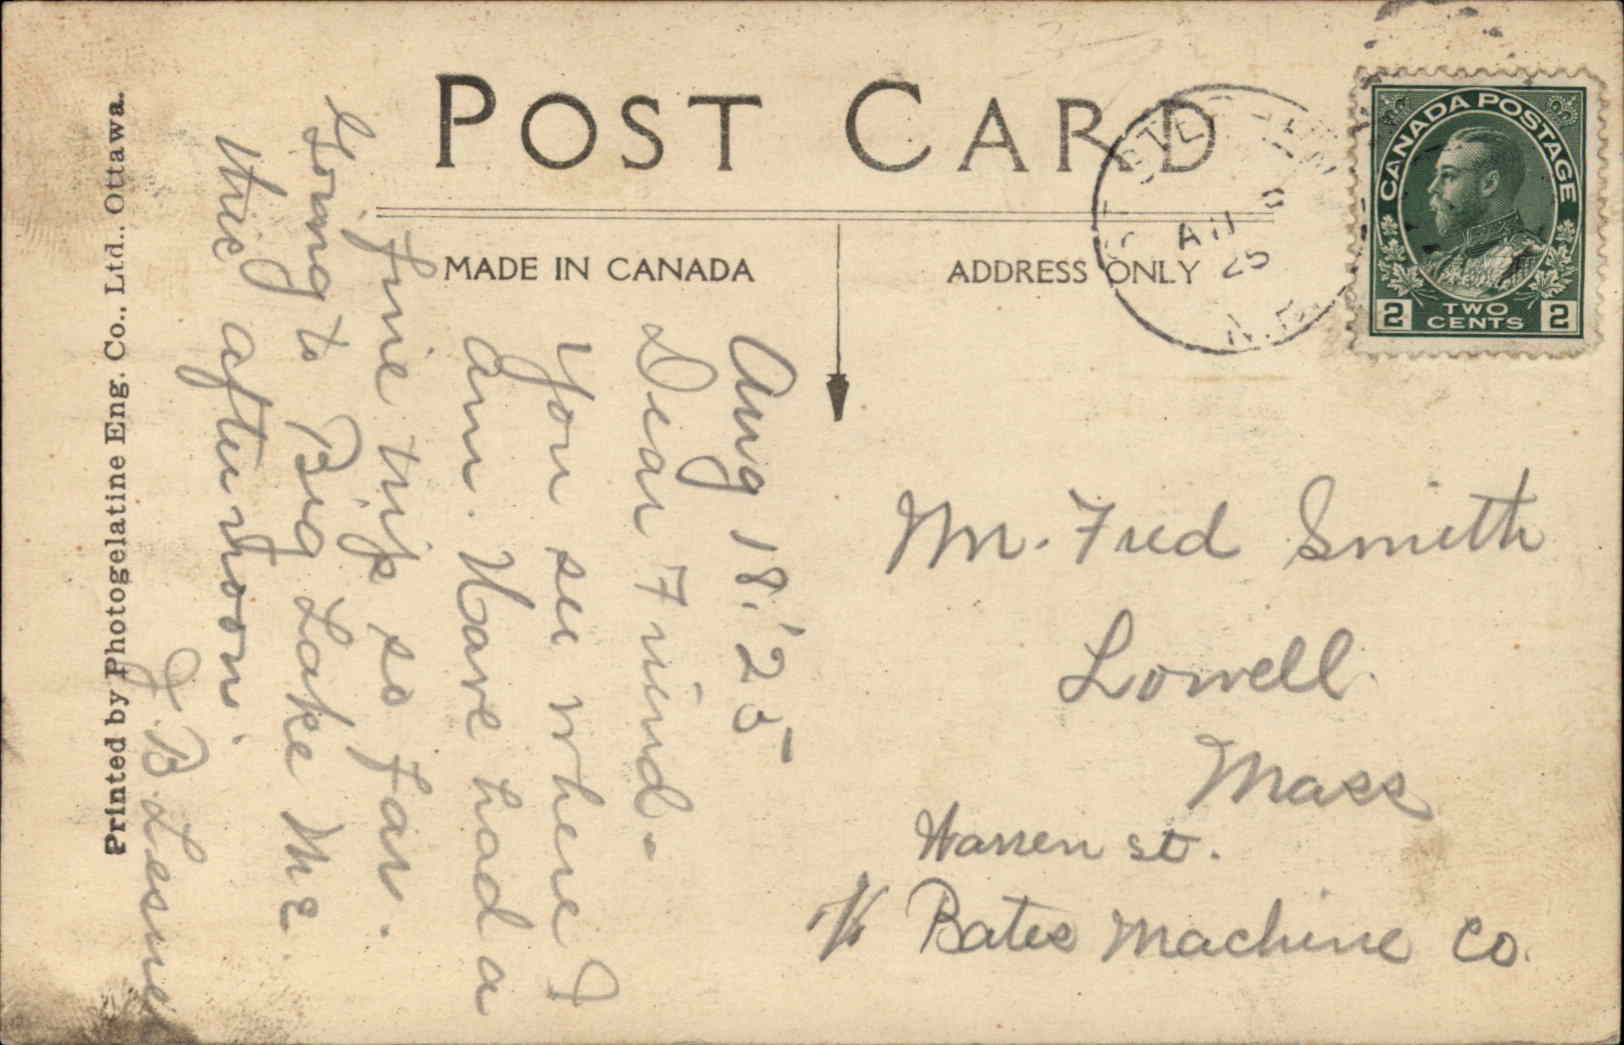 POST CARD
MADE IN CANADA
ADDRESS ONLY
CANADA POSTAGE
2 TWO CENTS 2
AU
25
N.B.
Aug 18, '25
Dear Friend.
You see where I
am. Have had a
fine trip so far.
Going to Big Lake Me
this afternoon.
J. B. Lesure
Mr. Fred Smith
Lowell
Mass
Warren st.
c/o Bates Machine Co.
Printed by Photogelatine Eng. Co., Ltd., Ottawa.